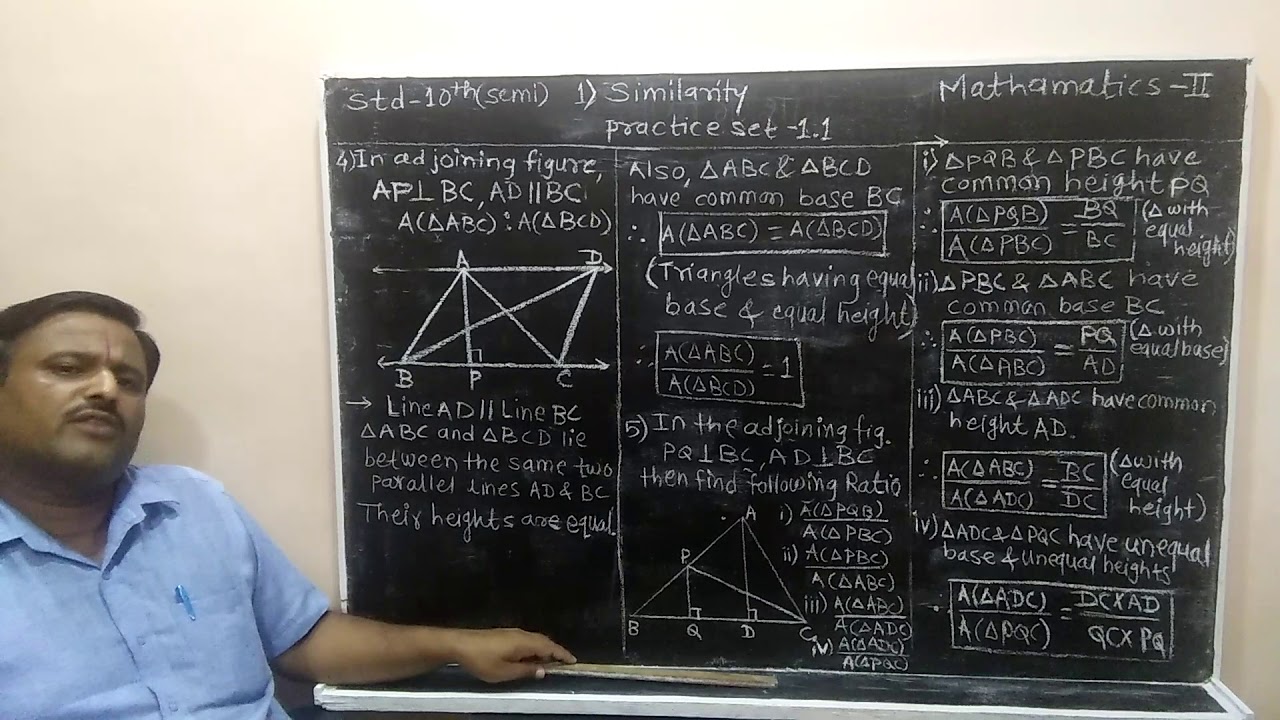 Std-10th(semi) 1) Similarity
practice set -1.1
Mathamatics -II
4) In adjoining figure,
AP⊥ BC, AD || BC
A(△ABC) : A(△BCD)
A D
B P C
→ Line AD || Line BC
△ABC and △BCD lie
between the same two
parallel lines AD & BC
Their heights are equal.
Also, △ABC & △BCD
have common base BC
∴ A(△ABC) = A(△BCD)
(Triangles having equal
base & equal height)
∴ A(△ABC)/A(△BCD) = 1
5) In the adjoining fig.
PQ⊥BC, AD⊥BC
then find following Ratio
i) A(△PQB)/A(△PBC)
ii) A(△PBC)/A(△ABC)
iii) A(△ABC)/A(△ADC)
iv) A(△ADC)/A(△PQC)
A
P
B Q D C
→
i) △PQB & △PBC have
common height PQ
∴ A(△PQB)/A(△PBC) = BQ/BC (△ with
equal
height)
ii) △PBC & △ABC have
common base BC
∴ A(△PBC)/A(△ABC) = PQ/AD (△ with
equal base)
iii) △ABC & △ADC have common
height AD.
∴ A(△ABC)/A(△ADC) = BC/DC (△ with
equal
height)
iv) △ADC & △PQC have unequal
base & unequal heights
∴ A(△ADC)/A(△PQC) = DC×AD/QC×PQ